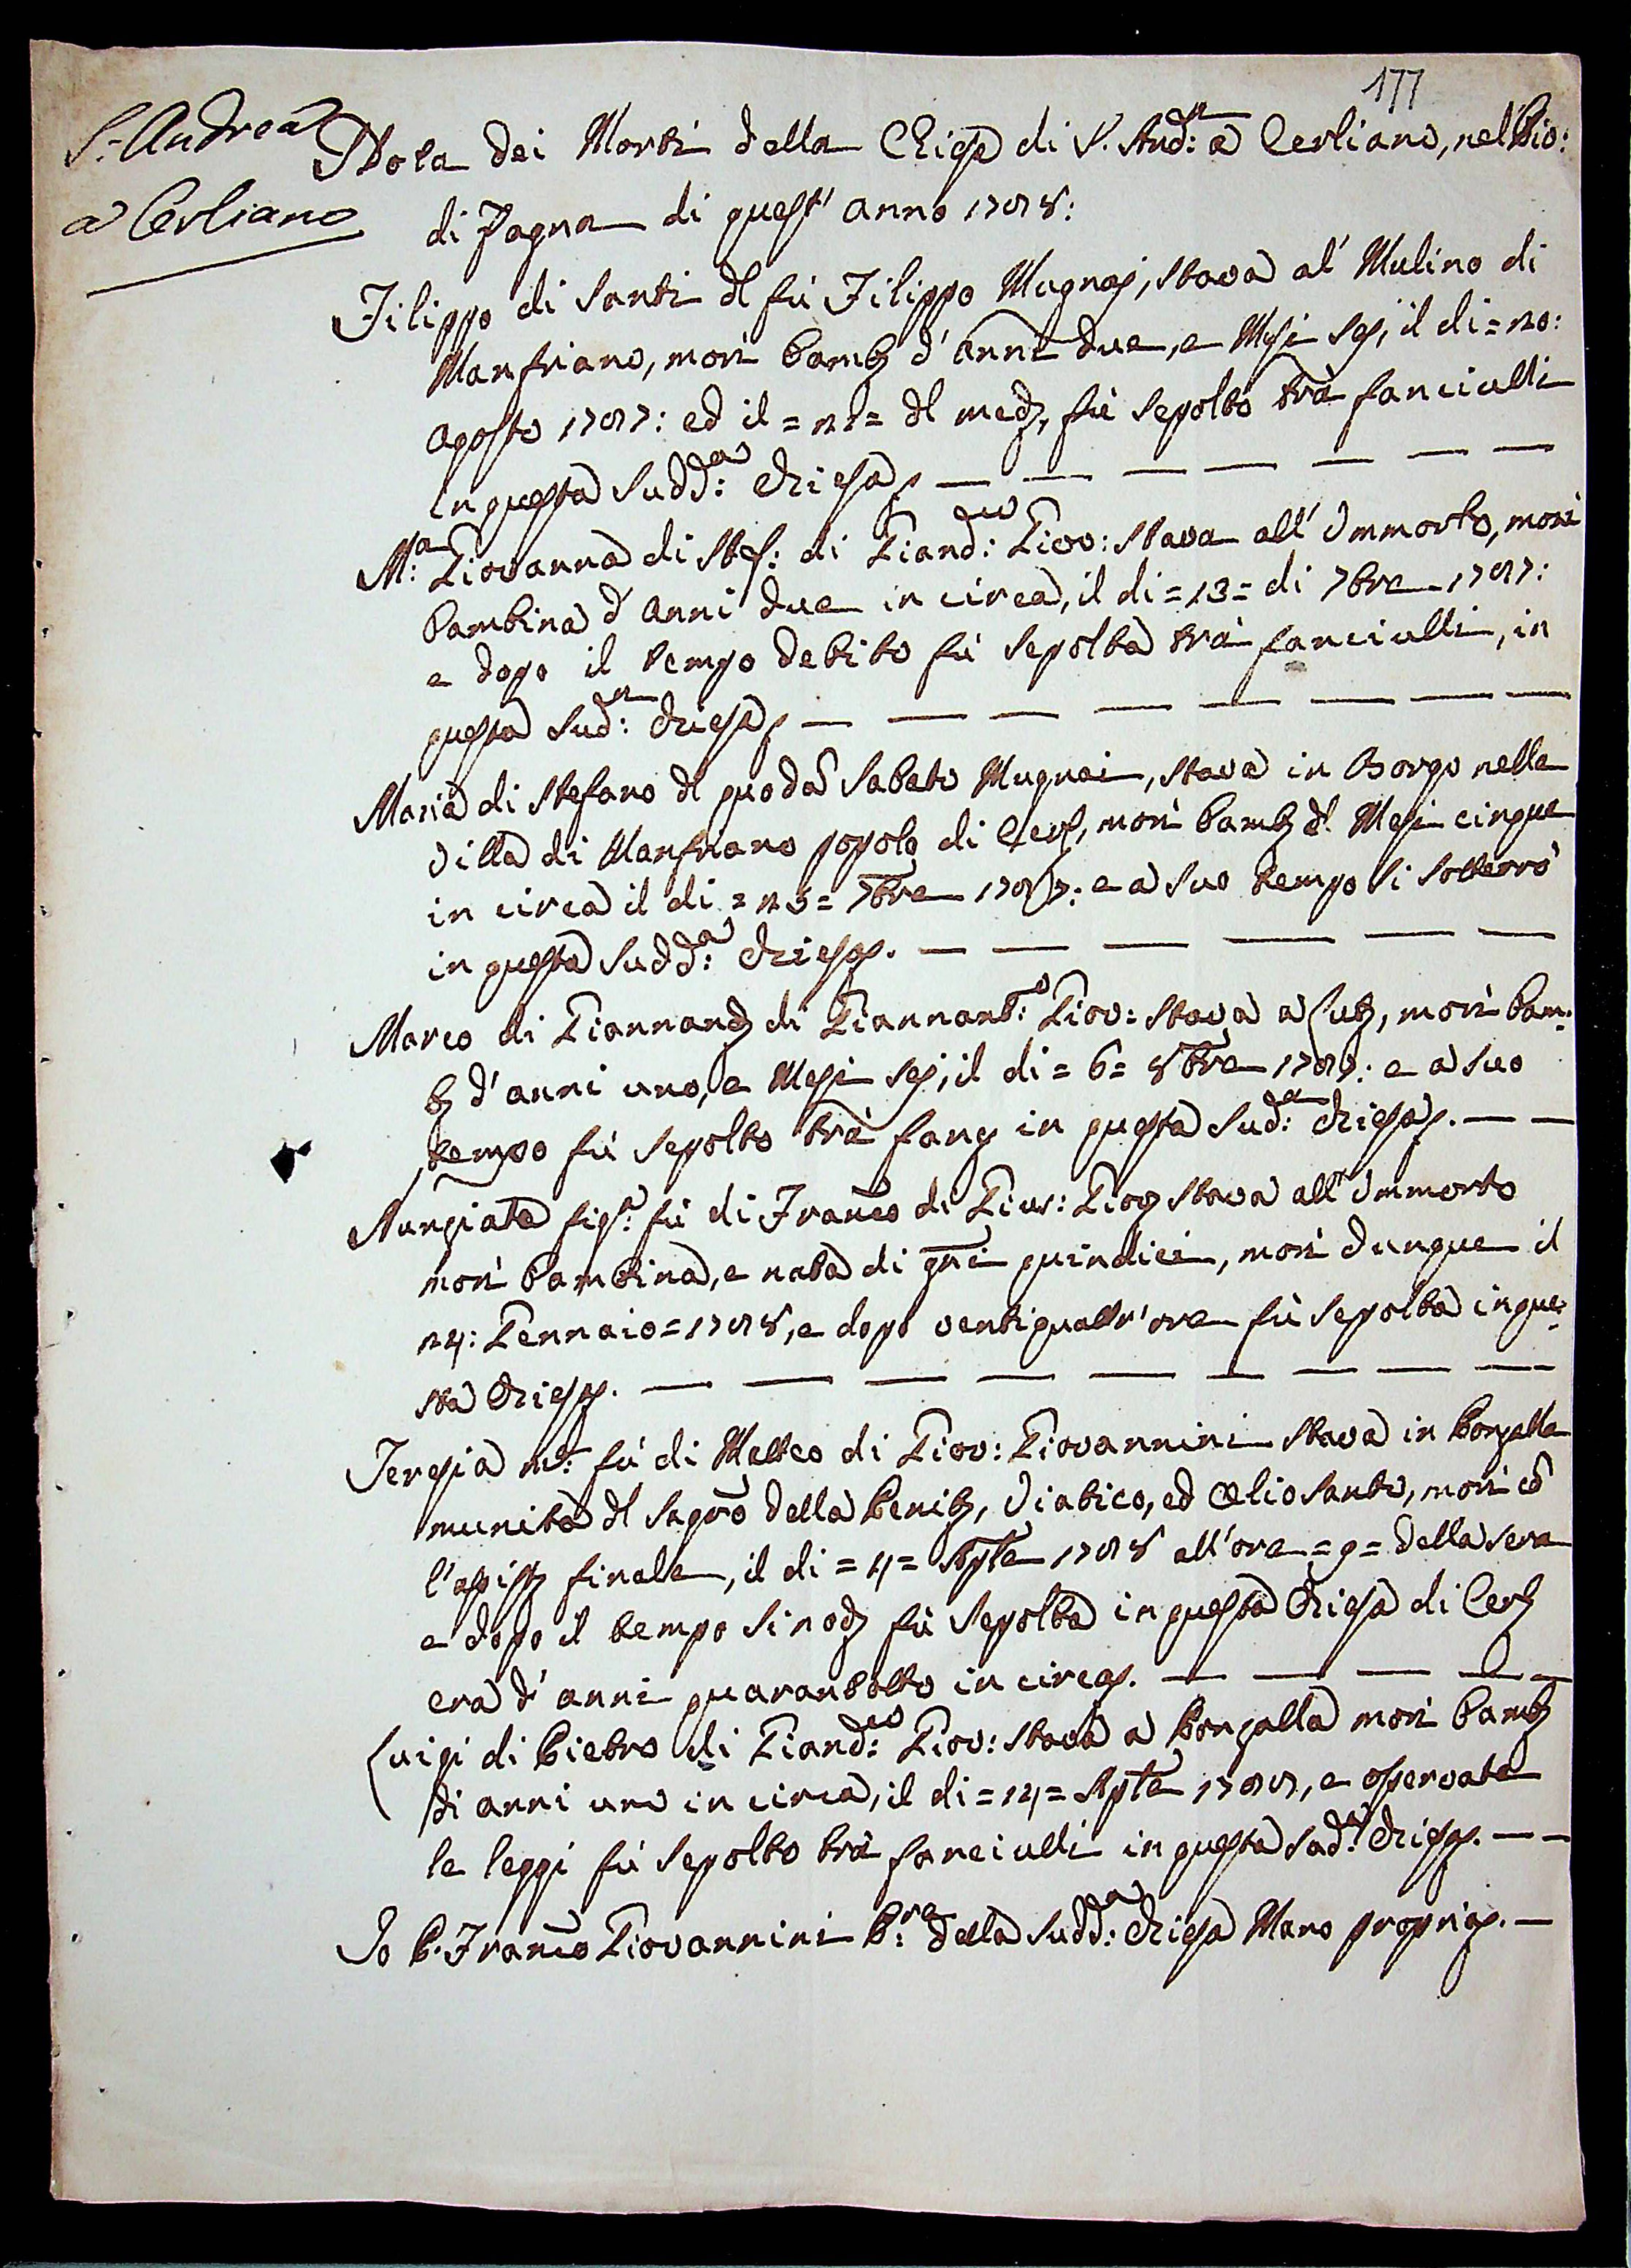 177
S. Andrea
a Cerliano
Nota dei Morti della Chiesa di S. And:a a Cerliano, nel Pio:
di Fagna di quest' anno 1788:
Filippo di Santi dl fù Filippo Mugnaj, stava al' Mulino di
Manfriano, morì bamb. d' anni due, e Mesi sej, il di = 20:
Agosto 1787: ed il = 21 = dl med., fù sepolto trà fanciulli
in questa Sudd:a Chiesa. — — — — — — —
M:a Giovanna di Stef: di Giand:co Giov: stava all' Immorto, morì
bambina d' anni due in circa, il di = 13 = di 7bre 1787:
e dopo il tempo debito fù sepolta trà fanciulli, in
questa Sud:a Chiesa. — — — — — — — —
Maria di Stefano dl quoda Sabato Mugnai, stava in Borgo nella
villa di Manfriano popolo di Cerl., morì bamb. d. Mesi cinque
in circa il di = 25 = 7bre 1787: e a suo tempo si sotterrò
in questa Sudd:a Chiesa. — — — — — —
Marco di Giannand. di Giannant:o Giov: stava a Lut., morì bam:
b. d' anni uno, e Mesi sej, il di = 6 = 8bre 1787: e a suo
tempo fù sepolto trà fanc. in questa Sud:a Chiesa. — —
Nunziata figl:a fù di Franco di Gius: Giov. stava all' Immorto
morì bambina, e nata di gni quindici, morì dunque il
24: Gennaio = 1788, e dopo ventiquattr' ore fù sepolta in que:
sta Chiesa. — — — — — — — — —
Teresia m:e fù di Matteo di Giov: Giovannini stava in Bonzalla
munita dl Sagro della Penit., Viatico, ed Olio Santo, morì co
l'assist. finale, il di = 4 = Aple 1788 all'ore = 9 = della sera
e dopo il tempo sinod. fù sepolta in questa Chiesa di Cerl.
era d' anni quarantotto in circa. — — — — —
Luigi di Pietro di Giand:co Giov: stava a Bonzalla morì bamb.
di anni uno in circa, il di = 14 = Aple 1788, e osservate
le leggi fù sepolto trà fanciulli in questa sud:a Chiesa. — —
Io P. Franco Giovannini P:re della Sudd:a Chiesa Mano propria. —